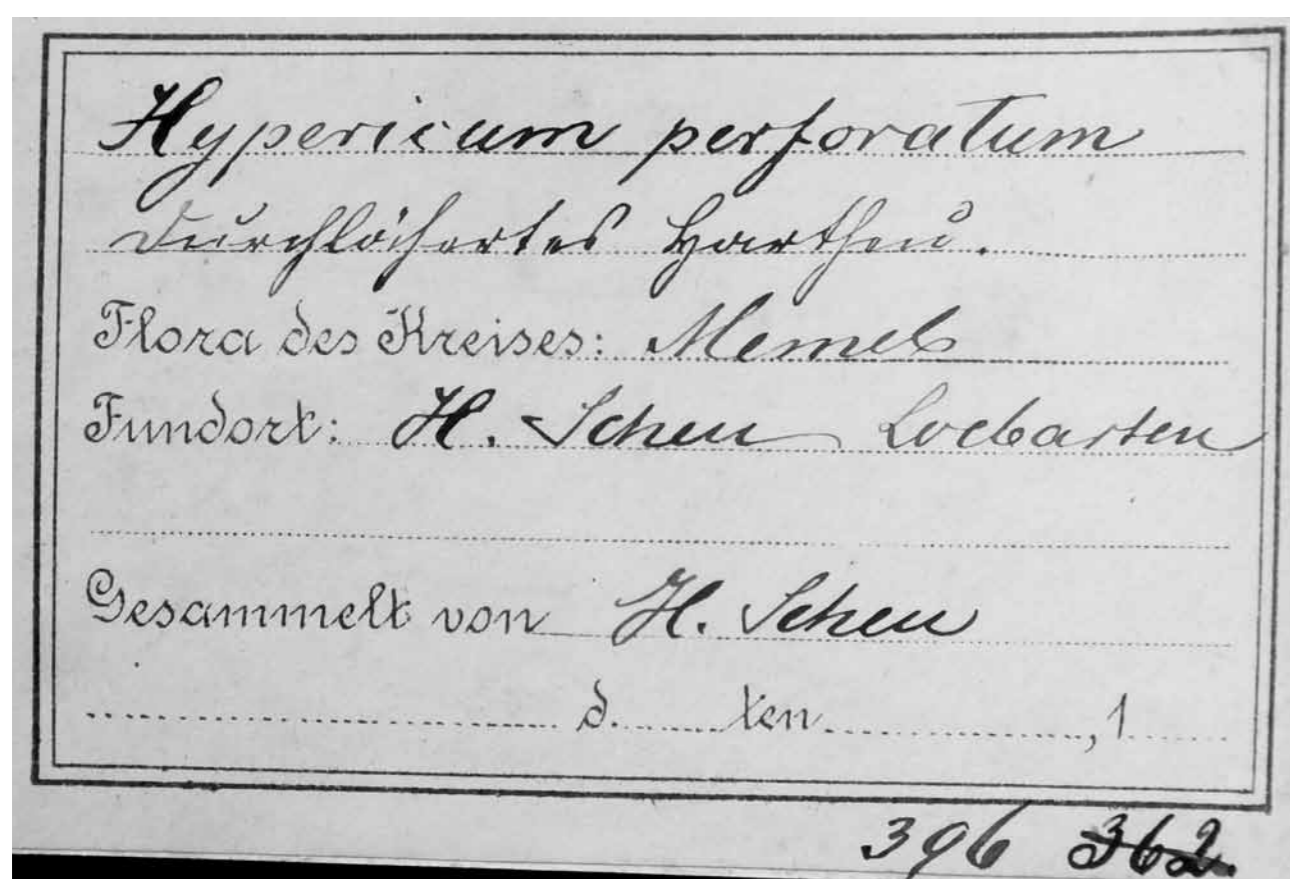 Hypericum perforatum
Durchlöchertes Hartheu.
Flora des Kreises: Memel
Fundort: H. Scheu Loebarten
Gesammelt von H. Scheu
d. ten ,1
396 362.